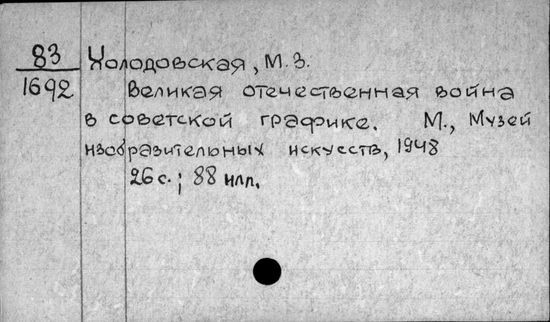 83
1692
Холодовская, М.З.
Великая отечественная война
в советской графике. М., Музей
изобразительных искусств, 1948
26 с.; 88 илл.